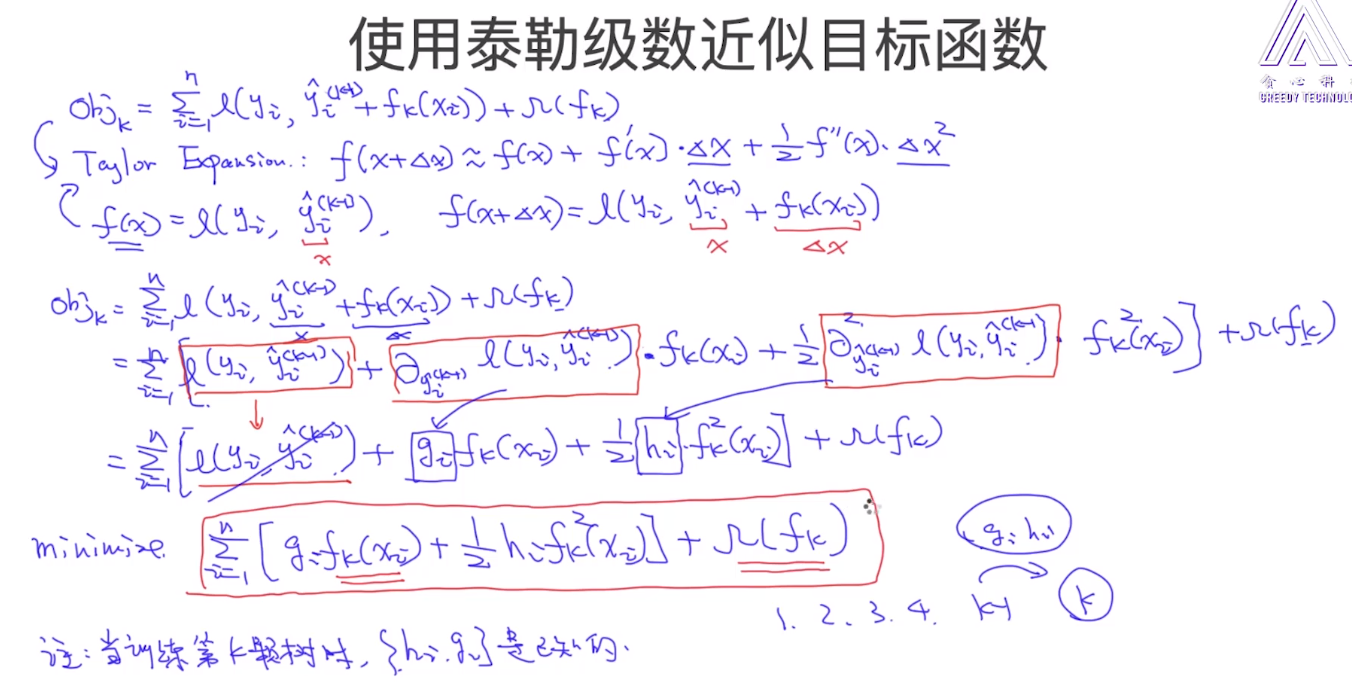 使用泰勒级数近似目标函数
贪心科技
GREEDY TECHNOLO
Obj_k = Σ_{i=1}^{n} l(y_i, ŷ_i^{(k-1)} + f_k(x_i)) + Ω(f_k)
Taylor Expansion.: f(x+Δx) ≈ f(x) + f'(x)·Δx + 1/2 f''(x)·Δx²
f(x) = l(y_i, ŷ_i^{(k-1)}), f(x+Δx) = l(y_i, ŷ_i^{(k-1)} + f_k(x_i))
x x Δx
Obj_k = Σ_{i=1}^{n} l(y_i, ŷ_i^{(k-1)} + f_k(x_i)) + Ω(f_k)
x Δx
= Σ_{i=1}^{n} [l(y_i, ŷ_i^{(k-1)}) + ∂_{ŷ_i^{(k-1)}} l(y_i, ŷ_i^{(k-1)})·f_k(x_i) + 1/2 ∂²_{ŷ_i^{(k-1)}} l(y_i, ŷ_i^{(k-1)})·f_k²(x_i)] + Ω(f_k)
= Σ_{i=1}^{n} [l(y_i, ŷ_i^{(k-1)}) + g_i f_k(x_i) + 1/2 h_i·f_k²(x_i)] + Ω(f_k)
minimize. Σ_{i=1}^{n} [g_i f_k(x_i) + 1/2 h_i f_k²(x_i)] + Ω(f_k)
g_i h_i
1. 2. 3. 4. k-1 k
注:当训练第k颗树时, {h_i, g_i}是已知的.